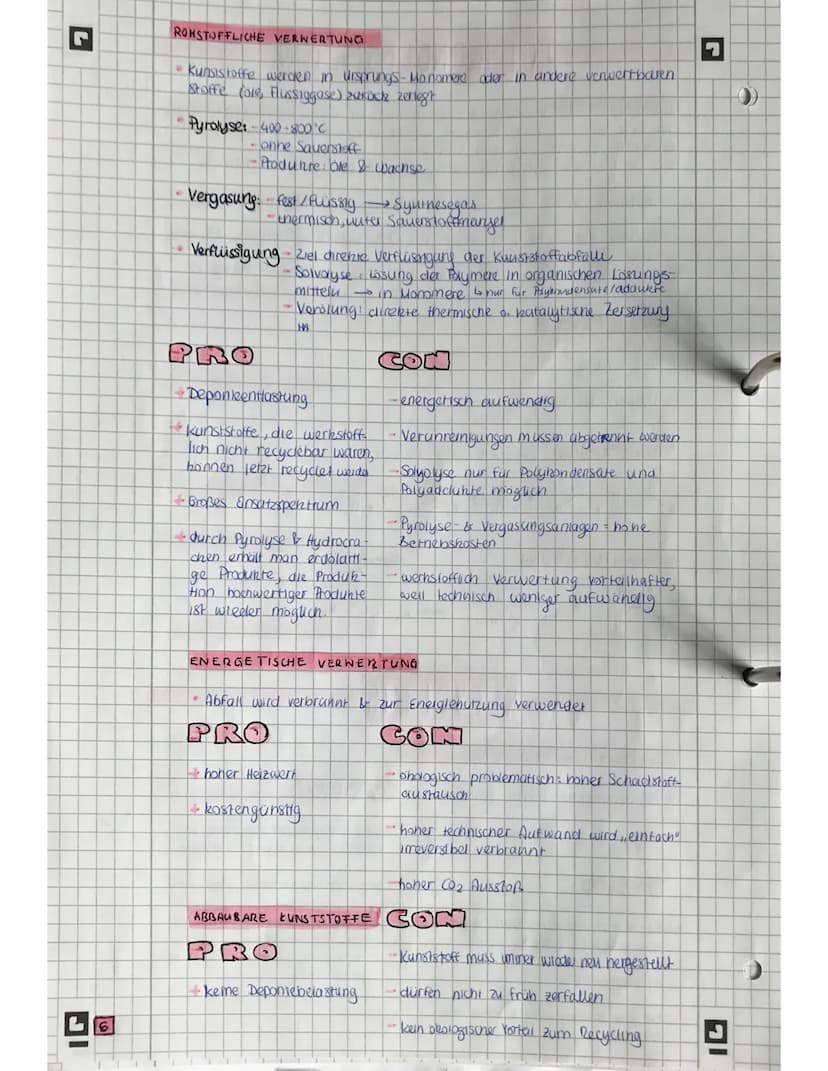 ROHSTOFFLICHE VERWERTUNG
• Kunststoffe werden in Ursprungs-Monomere oder in andere verwertbaren
Stoffe (Öle, Flüssiggase) zurück zerlegt
• Pyrolyse: - 400-800°C
- ohne Sauerstoff
- Produkte: Öle & Wachse
• Vergasung: - fest/flüssig → Synthesegas
- thermisch, unter Sauerstoffmangel
• Verflüssigung - Ziel direkte Verflüssigung der Kunststoffabfälle
- Solvolyse: Lösung der Polymere in organischen Lösungs-
mitteln → in Monomere ↳ nur für Polykondensate/addukte
- Verölung: direkte thermische o. katalytische Zersetzung
PRO
+ Deponieentlastung
+ Kunststoffe, die werkstoff-
lich nicht recyclebar waren,
können jetzt recycelt werden
+ Großes Einsatzspektrum
+ durch Pyrolyse & Hydrocra-
cken erhält man erdölarti-
ge Produkte, die Produk-
tion hochwertiger Produkte
ist wieder möglich.
CON
- energetisch aufwendig
- Verunreinigungen müssen abgetrennt werden
- Solvolyse nur für Polykondensate und
Polyaddukte möglich
- Pyrolyse- & Vergasungsanlagen = hohe
Betriebskosten
- werkstofflich Verwertung vorteilhafter,
weil technisch weniger aufwändig
ENERGETISCHE VERWERTUNG
• Abfall wird verbrannt & zur Energienutzung verwendet
PRO
+ hoher Heizwert
+ kostengünstig
CON
- ökologisch problematisch: hoher Schadstoff-
austausch
- hoher technischer Aufwand wird „einfach"
irreversibel verbrannt
- hoher CO₂ Ausstoß
ABBAUBARE KUNSTSTOFFE
PRO
+ keine Deponiebelastung
CON
- Kunststoff muss immer wieder neu hergestellt
- dürfen nicht zu früh zerfallen
- kein ökologischer Vorteil zum Recycling
6